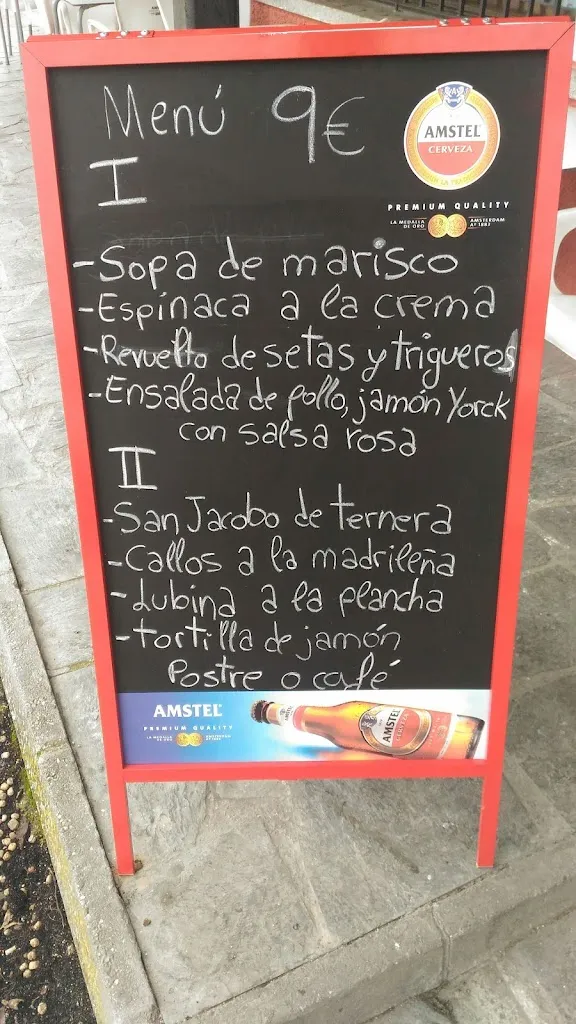 Menú 9€
AMSTEL
CERVEZA
PREMIUM QUALITY
LA MEDALLA DE ORO
AMSTERDAM Aº 1883
I
-Sopa de marisco
-Espinaca a la crema
-Revuelto de setas y trigueros
-Ensalada de pollo, jamón Yorck
con salsa rosa
II
-San Jacobo de ternera
-Callos a la madrileña
-Lubina a la plancha
-tortilla de jamón
Postre o café
AMSTEL
PREMIUM QUALITY
AMSTEL